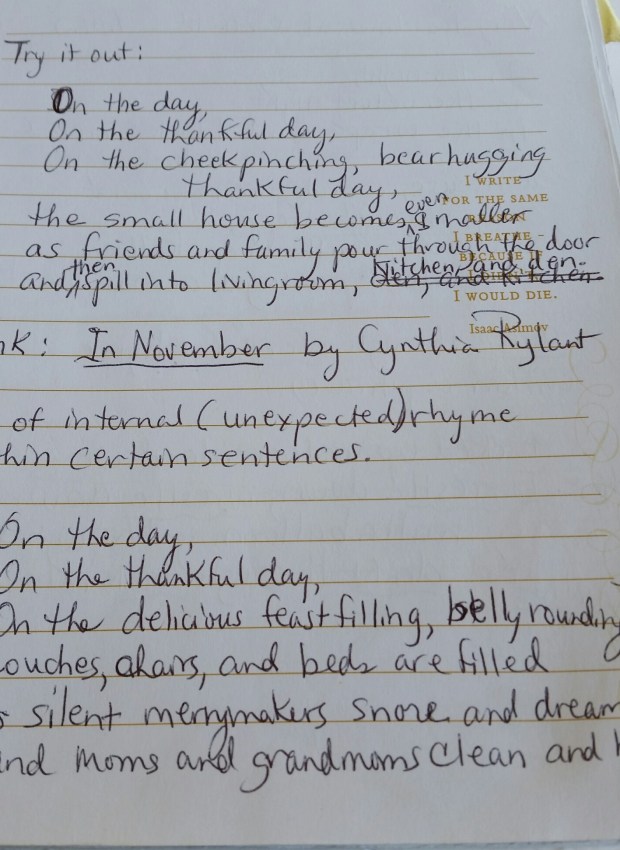 Try it out:
On the day,
On the thankful day,
On the cheekpinching, bearhugging
thankful day,
the small house becomes even smaller
as friends and family pour through the door
and then spill into livingroom, kitchen, and den.
den, and kitchen
I WRITE
FOR THE SAME
I BREATHE -
BECAUSE IF
I WOULD DIE.
Isaac Asimov
k: In November by Cynthia Rylant
of internal (unexpected) rhyme
hin certain sentences.
On the day,
On the thankful day,
On the delicious feastfilling, bellyrounding
ouches, chairs, and beds are filled
s silent merrymakers snore and dream
nd moms and grandmoms clean and